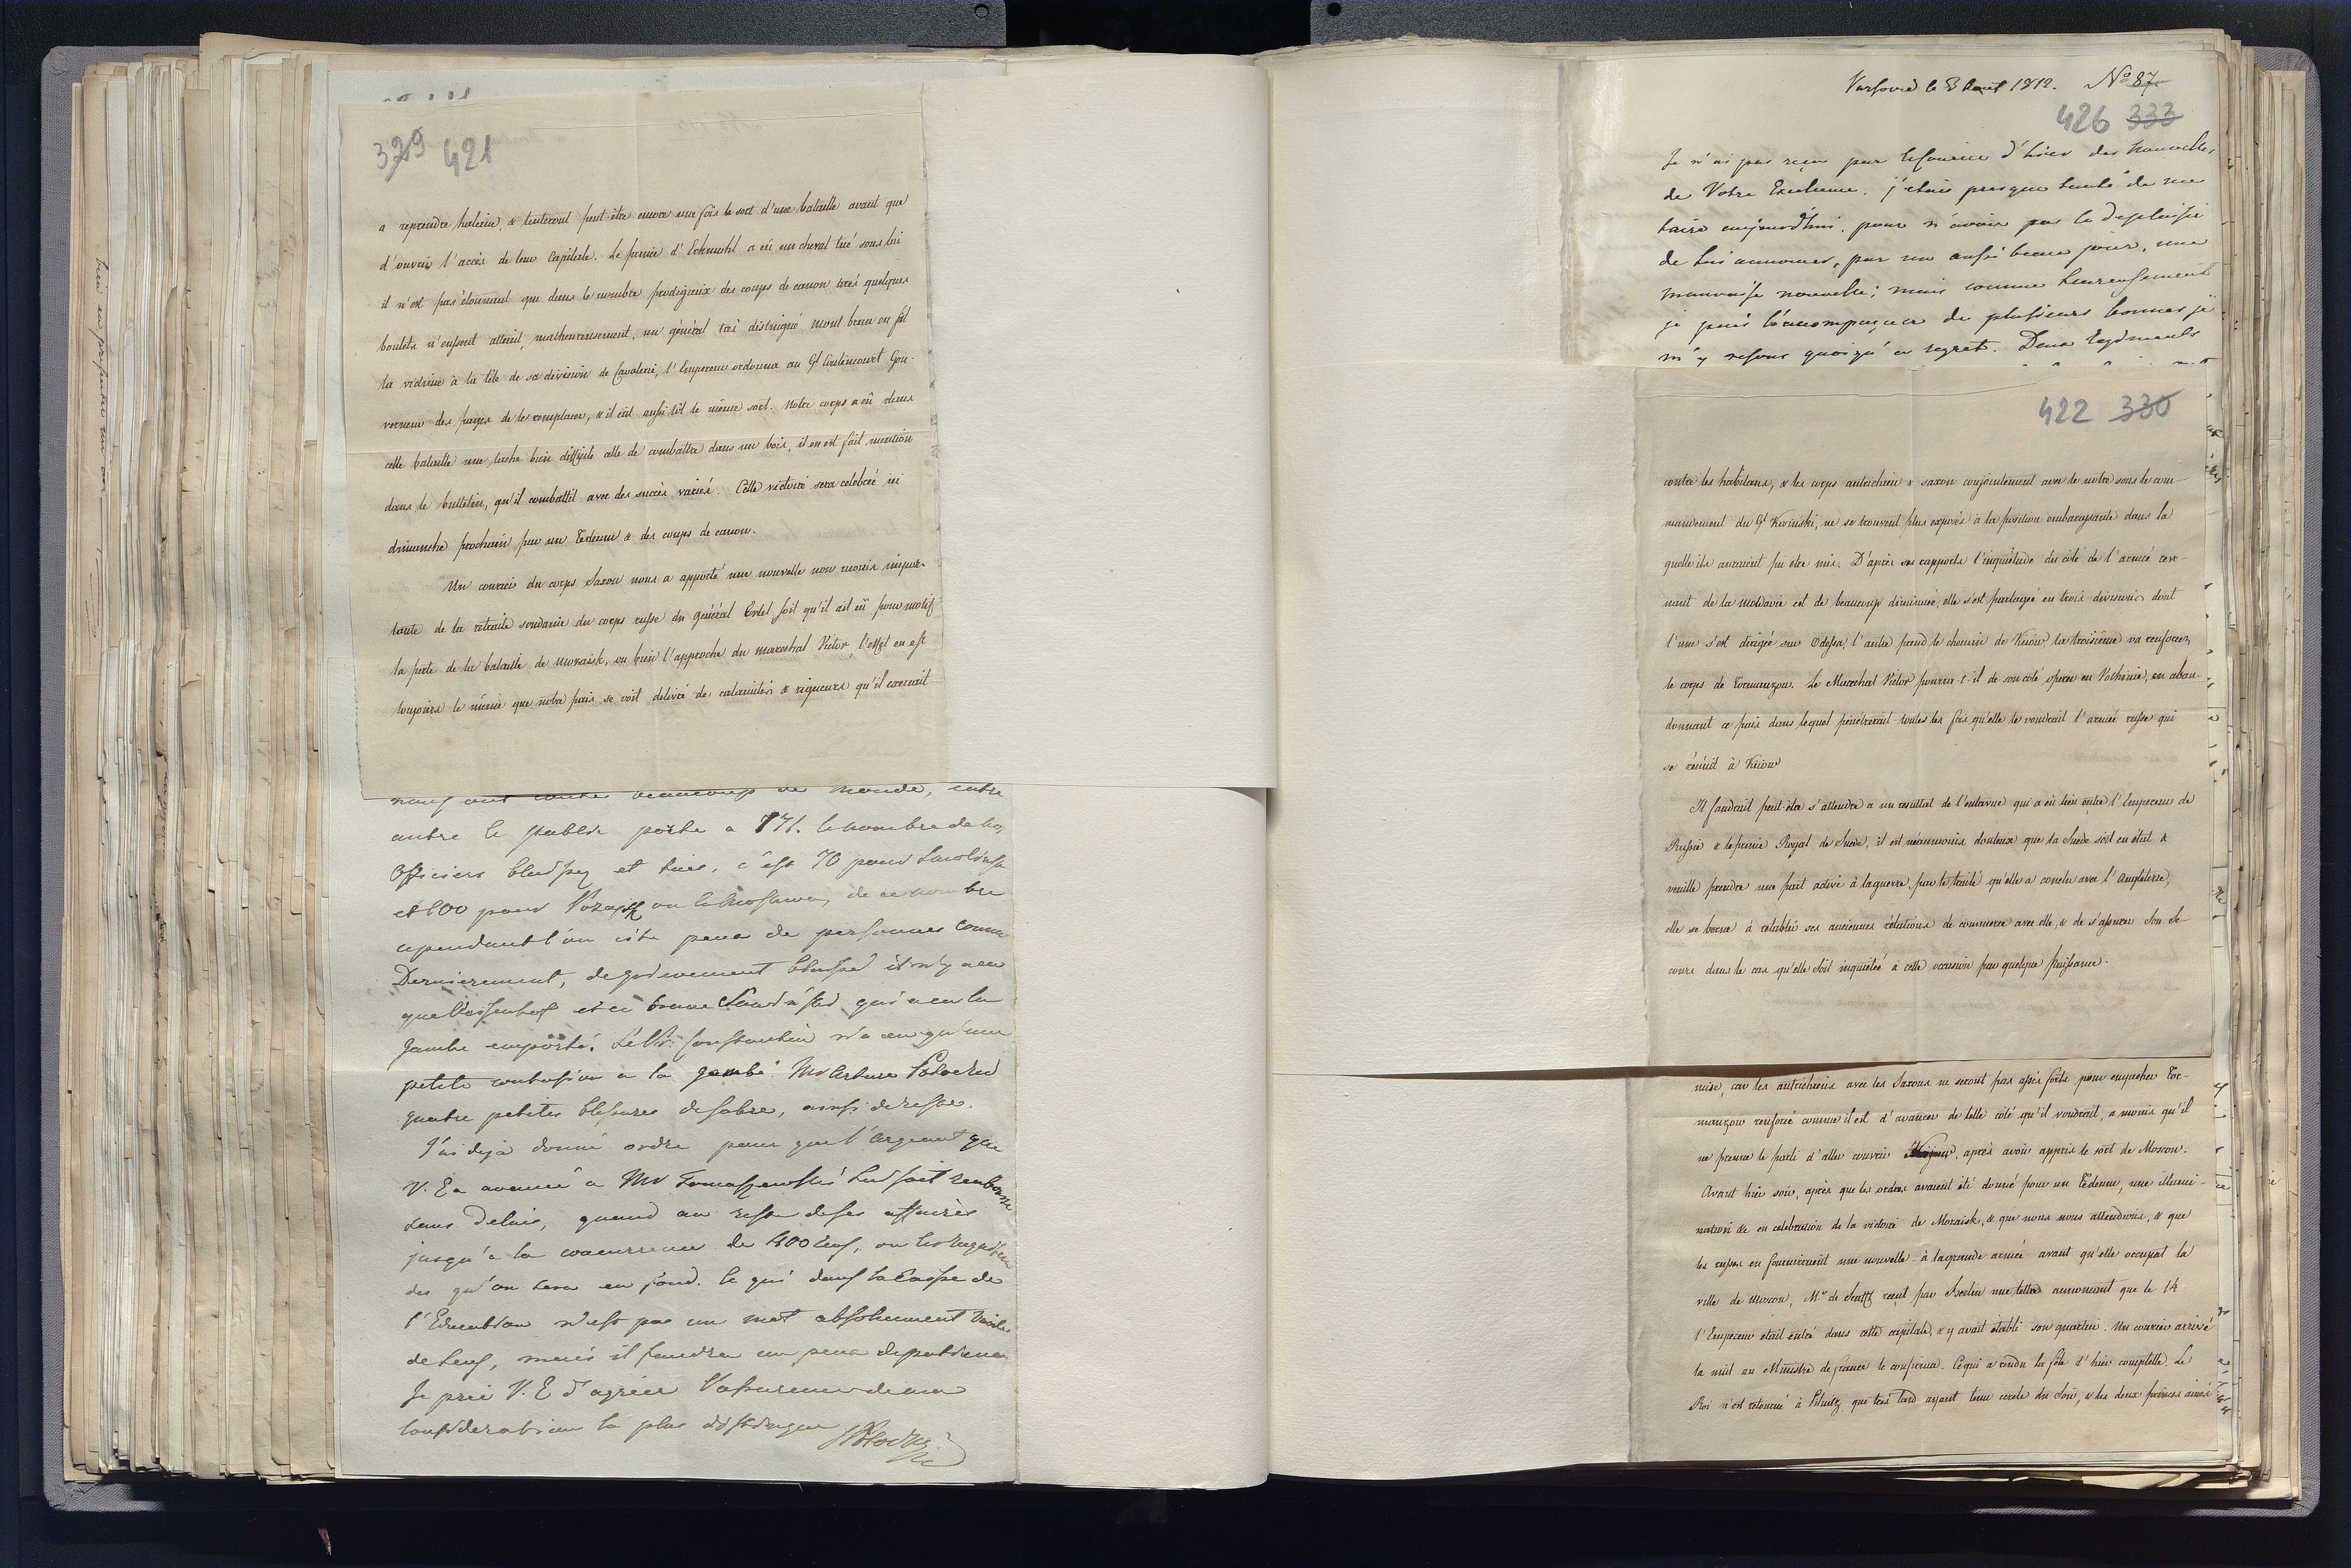 329 421
a reprendre haleine, & tenteront peut-être encore une fois le sort d'une bataille avant que
d'ouvrir l'accès de leur Capitale. Le prince d'Eckmuhl a eü un cheval tué sous lui
il n'est pas étonnant que dans le nombre prodigieux des coups de canon tirés quelques
boulets n'eussent atteint, malheureusement, un général très distingué Mont brun en fût
la victime à la tête de sa division de Cavalerie, l'Empereur ordonna au Gl Caulincourt Gou-
verneur des pages de le remplacer, & il eût aussi tôt le même sort. Notre corps a eü dans
cette bataille une tache bien difficile celle de combattre dans un bois, il en est fait mention
dans le bulletin, qu'il combattit avec des succès variés. Cette victoire sera celebrée ici
dimanche prochain par un Tedeum & des coups de canon.
Un courrier du corps Saxon nous a apporté une nouvelle non moins impor-
tante de la retraite soudaine du corps russe du général Ertel soit qu'il ait eü pour motif
la perte de la bataille de Mozaisk, ou bien l'approche du marechal Victor, l'effet en est
toujours le même que notre païs se voit délivré des calamités & rigueurs qu'il exercait
beaucoup de monde, entre
autre le public porte a 171. le nombre de nos
Officiers blessez et tués, c'est 70 pour Smolensk
et 100 pour Mozaysk ou la Moskwa, de ce nombre
cependant l'on cite peu de personnes
Dernierement, de grievement blessé il n'y a eu
que et ce brave qui a eu la
jambe emporté. Le Pr: Constantin n'a eu qu'une
petite contusion a la jambe Mr Arture Potocki
quatre petites blessures de sabre, ainsi du reste.
J'ai deja donné ordre pour que l'argent que
V. E a avancé a Mr Tomaszewski lui soit
sans delais, quand au reste de ses affaires
jusqu'a la concurrence de 400 on les
des qu'on sera en fond. ce qui dans la Caisse de
l'Education n'est pas un mot absolument vuide
de sens, mais il faudra un peu de patience
Je prie V. E d'agréer l'assurance de ma
consideration la plus distinguée
Varsovie le 8 Aout 1812. No 87
426 333
Je n'ai pas reçu par le courier d'hier des nouvelles
de Votre Excellence. j'etais presque tenté de me
taire aujourd'hui. pour n'avoir pas le deplaisir
de lui annoncer, par un aussi beau jour, une
mauvaise nouvelle; mais comme heureusement
je puis l'accompagner de plusieurs bonnes je
m'y resous quoiqu'a regret. Deux Regiments
422 330
contre les habitans, & les corps autrichien & saxon conjointement avec le notre sous le com-
mandement du Gl Kosinski, ne se trouvent plus exposés à la position embarassante dans la
quelle ils auroient pu être mis. D'après ses rapports l'inquiétude du côté de l'armée reve-
nant de la Moldavie est de beaucoup diminuée, elle s'est partagée en trois divisions dont
l'une s'est dirigée sur Odessa, l'autre prend le chemin de Kiiow la troisieme va renforcer
le corps de Tormanzow. Le Marechal Victor pourra-t-il de son côté operer en Volhinie, en aban-
donnant ce païs dans lequel pénétrerait toutes les fois qu'elle le voudrait l'armée russe qui
se réunit à Kiiow
Il faudrait peut-être s'attendre a un resultat de l'entrevue qui a eü lieu entre l'Empereur de
Russie & le prince Royal de Suede, il est néanmoins douteux que la Suede soit en état &
veuille prendre une part active à la guerre, par le traité qu'elle a conclu avec l'Angleterre,
elle se borne à retablir ses anciennes rélations de commerce avec elle, & de s'assurer Son Se-
cours dans le cas qu'elle soit inquiétée à cette occasion par quelque puissance.
mise, car les autrichiens avec les Saxons ne seront pas assés forts pour empecher Tor-
manzow renforcé comme il est d'avancer de telle côté qu'il voudrait, a moins qu'il
ne prenne le parti d'aller couvrir après avoir appris le sort de Moscou.
Avant hier soir, après que les ordres avaient été donné pour un Tedeum, une illumi-
nation &c en celebration de la victoire de Mozaisk, & que nous nous attendions, & que
les russes en fourniraient une nouvelle à la grande armée avant qu'elle occupat la
ville de Moscou, Mr de reçut par Berlin une lettre annoncant que le 14
l'Empereur était entré dans cette capitale, & y avait établi son quartier. Un courrier arrivé
la nuit au Ministre de france le confirma. Ce qui a rendu la fête d'hier complette. Le
Roi n'est retourné à Pilnitz que très tard ayant tenu cercle du Soir, & les deux princes ainés